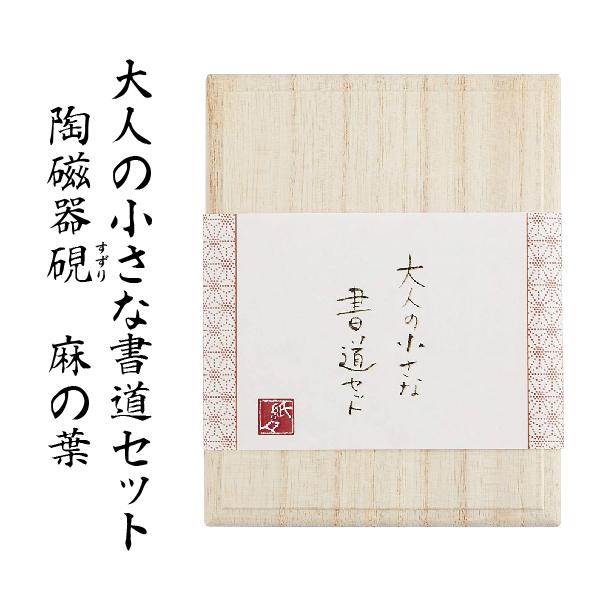 大人の小さな書道セット
陶磁器硯 麻の葉
すずり
大人の小さな
書道セット
紙々